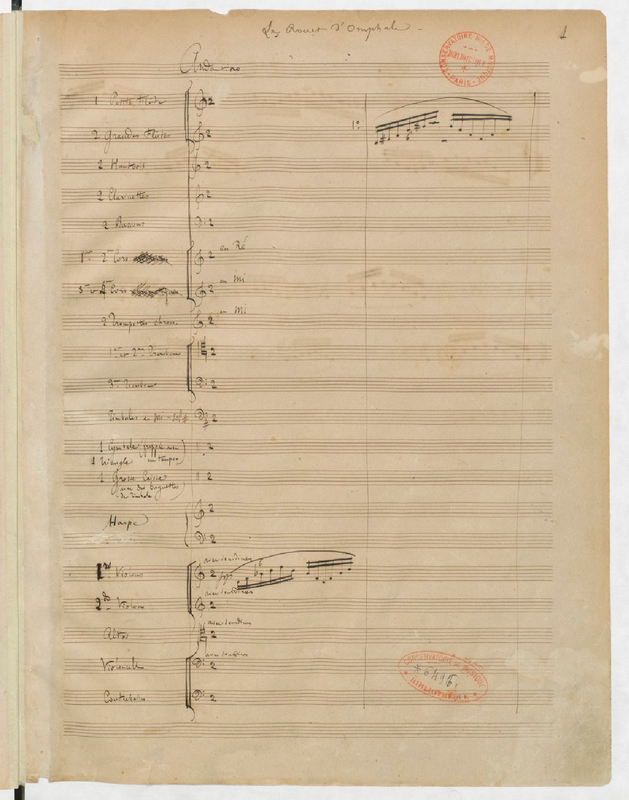 Le Rouet d'Omphale
1
Andantino
1 Petite Flûte
2 Grandes Flûtes
1º
2 Hautbois
2 Clarinettes
2 Bassons
1er 2e Cors
en Ré
Cors
en Mi
2 Trompettes chrom.
en Mi
1er et 2me Trombones
3me Trombone
Timbales en Mi - Sol#
1 Cymbale (frappée avec
1 Triangle un tampon)
1 Grosse Caisse
(avec des baguettes
de timbale)
Harpe
avec sourdines
1rs Violons
ppp
avec sourdines
2ds Violons
avec sourdines
Altos
avec sourdines
Violoncelles
Contrebasses
CONSERVATOIRE DE MUSIQUE
BIBLIOTHÈQUE